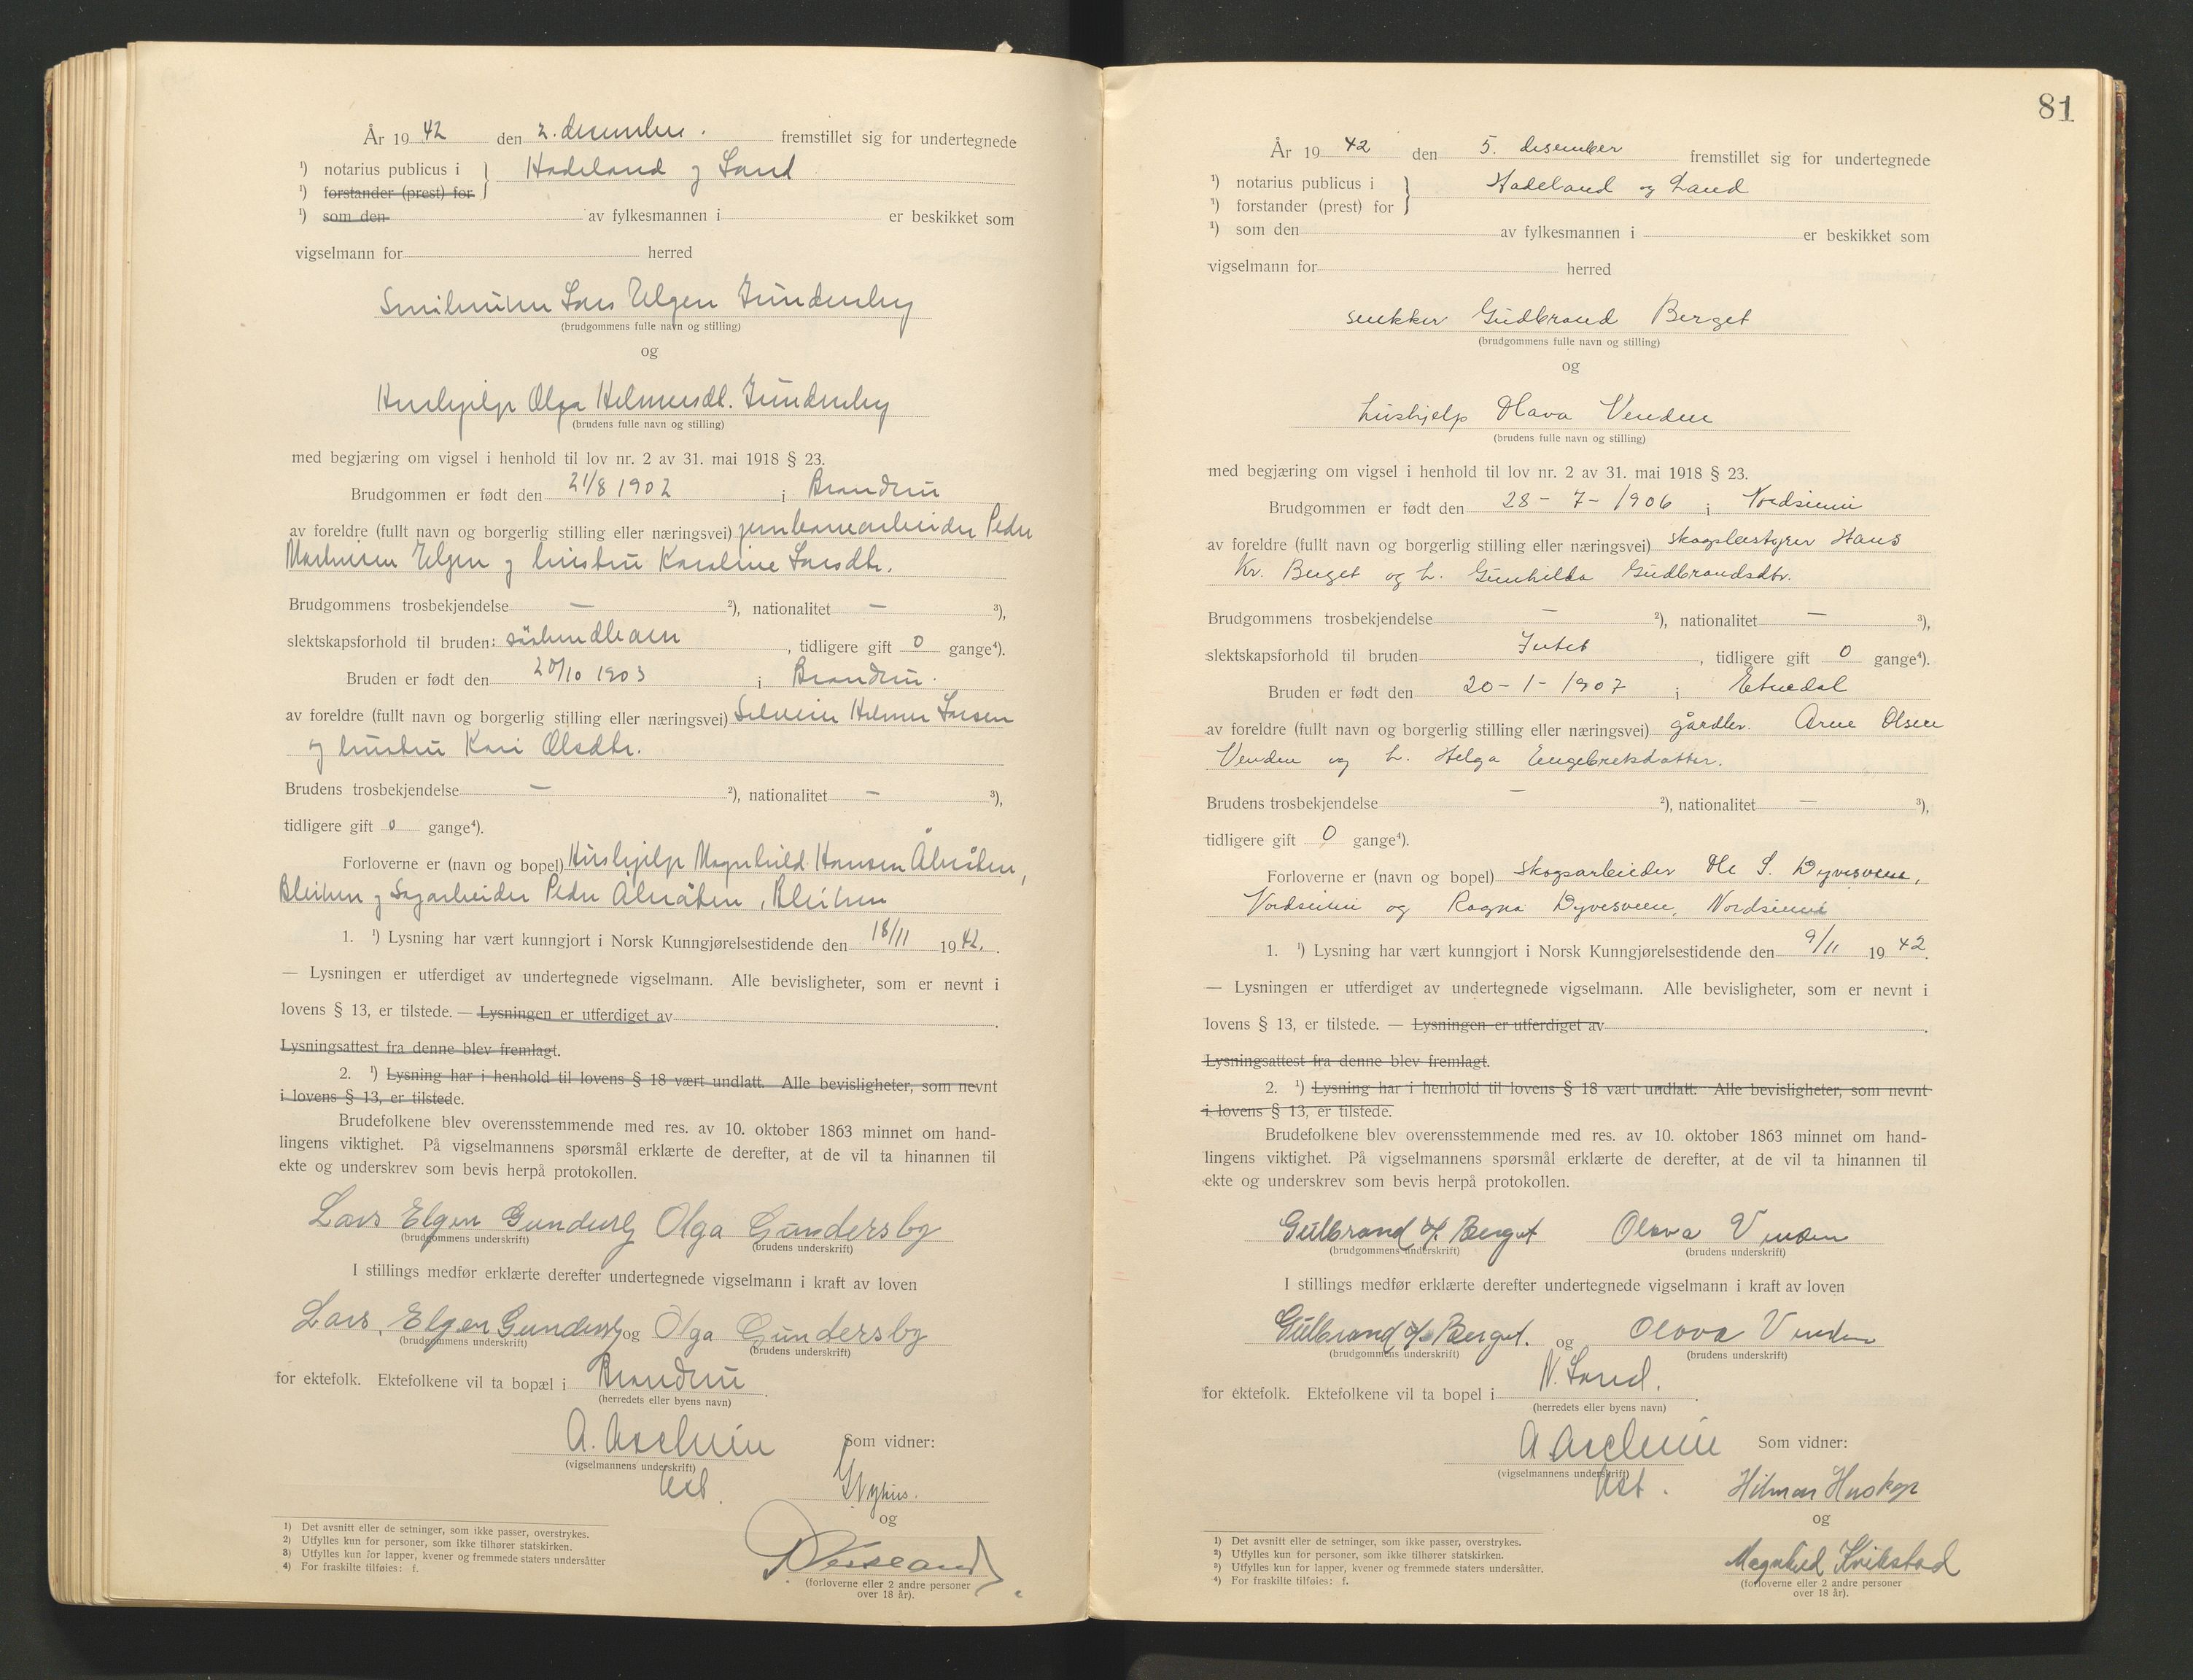 År 19 42 den 2. desember. fremstillet sig for undertegnede
¹) notarius publicus i } Hadeland og Land
¹) forstander (prest) for
¹) som den av fylkesmannen i er beskikket som
vigselmann for herred
Lars Elgen Gundersby
(brudgommens fulle navn og stilling)
og
Hushjelp Olga Helmersdt. Gundersby
(brudens fulle navn og stilling)
med begjæring om vigsel i henhold til lov nr. 2 av 31. mai 1918 § 23.
Brudgommen er født den 21/8 1902 i Brandbu
av foreldre (fullt navn og borgerlig stilling eller næringsvei) jernbanearbeider Peder
Mathisen Elgen og hustru Karoline Larsdtr.
Brudgommens trosbekjendelse — ²), nationalitet — ³),
slektskapsforhold til bruden: søskendbarn, tidligere gift 0 gange⁴).
Bruden er født den 20/10 1903 i Brandbu.
av foreldre (fullt navn og borgerlig stilling eller næringsvei) Helmer Larsen
og hustru Kari Olsdtr.
Brudens trosbekjendelse — ²), nationalitet — ³),
tidligere gift 0 gange⁴).
Forloverne er (navn og bopel) Hushjelp Magnhild Hansen Ålråken,
Bleiken og Sagarbeider Peder Ålråken, Bleiken
1. ¹) Lysning har vært kunngjort i Norsk Kunngjørelsestidende den 18/11 1942.
— Lysningen er utferdiget av undertegnede vigselmann. Alle bevisligheter, som er nevnt i
lovens § 13, er tilstede. — Lysningen er utferdiget av .
Lysningsattest fra denne blev fremlagt.
2. ¹) Lysning har i henhold til lovens § 18 vært undlatt. Alle bevisligheter, som nevnt
i lovens § 13, er tilstede.
Brudefolkene blev overensstemmende med res. av 10. oktober 1863 minnet om hand-
lingens viktighet. På vigselmannens spørsmål erklærte de derefter, at de vil ta hinannen til
ekte og underskrev som bevis herpå protokollen.
Lars Elgen Gundersby Olga Gundersby
(brudgommens underskrift) (brudens underskrift)
I stillings medfør erklærte derefter undertegnede vigselmann i kraft av loven
Lars Elgen Gundersby og Olga Gundersby
(brudgommens underskrift) (brudens underskrift)
for ektefolk. Ektefolkene vil ta bopæl i Brandbu.
(herredets eller byens navn)
A. Aschim Som vidner:
(vigselmannens underskrift)
Ust. Nyhus.
og
(forloverne eller 2 andre personer
over 18 år).
1) Det avsnitt eller de setninger, som ikke passer, overstrykes.
2) Utfylles kun for personer, som ikke tilhører statskirken.
3) Utfylles kun for lapper, kvener og fremmede staters undersåtter
4) For fraskilte tilføies: f.
81
År 19 42 den 5. desember fremstillet sig for undertegnede
¹) notarius publicus i } Hadeland og Land
¹) forstander (prest) for
¹) som den av fylkesmannen i er beskikket som
vigselmann for herred
snekker Gudbrand Berget
(brudgommens fulle navn og stilling)
og
hushjelp Olava Venden
(brudens fulle navn og stilling)
med begjæring om vigsel i henhold til lov nr. 2 av 31. mai 1918 § 23.
Brudgommen er født den 28 - 7 - 1906 i Nordsinni
av foreldre (fullt navn og borgerlig stilling eller næringsvei) skogbestyrer Hans
Kr. Berget og h. Gunhilda Gudbrandsdtr.
Brudgommens trosbekjendelse — ²), nationalitet — ³),
slektskapsforhold til bruden Intet, tidligere gift 0 gange⁴).
Bruden er født den 20 - 1 - 1907 i Etnedal
av foreldre (fullt navn og borgerlig stilling eller næringsvei) gårdbr. Arne Olsen
Venden og h. Helga Engebretsdatter.
Brudens trosbekjendelse — ²), nationalitet — ³),
tidligere gift 0 gange⁴).
Forloverne er (navn og bopel) skogsarbeider Ole S. Dyvesveen,
Nordsinni og Ragna Dyvesveen, Nordsinni
1. ¹) Lysning har vært kunngjort i Norsk Kunngjørelsestidende den 9/11 1942.
— Lysningen er utferdiget av undertegnede vigselmann. Alle bevisligheter, som er nevnt i
lovens § 13, er tilstede. — Lysningen er utferdiget av .
Lysningsattest fra denne blev fremlagt.
2. ¹) Lysning har i henhold til lovens § 18 vært undlatt. Alle bevisligheter, som nevnt
i lovens § 13, er tilstede.
Brudefolkene blev overensstemmende med res. av 10. oktober 1863 minnet om hand-
lingens viktighet. På vigselmannens spørsmål erklærte de derefter, at de vil ta hinannen til
ekte og underskrev som bevis herpå protokollen.
Gulbrand H. Berget Olava Venden
(brudgommens underskrift) (brudens underskrift)
I stillings medfør erklærte derefter undertegnede vigselmann i kraft av loven
Gulbrand H. Berget. og Olava Venden
(brudgommens underskrift) (brudens underskrift)
for ektefolk. Ektefolkene vil ta bopel i N. Land.
(herredets eller byens navn)
A Aschim Som vidner:
(vigselmannens underskrift)
Ust. Hilmar Huskop
og
Magnhild Kvikstad
(forloverne eller 2 andre personer
over 18 år).
1) Det avsnitt eller de setninger, som ikke passer, overstrykes.
2) Utfylles kun for personer, som ikke tilhører statskirken.
3) Utfylles kun for lapper, kvener og fremmede staters undersåtter.
4) For fraskilte tilføies: f.